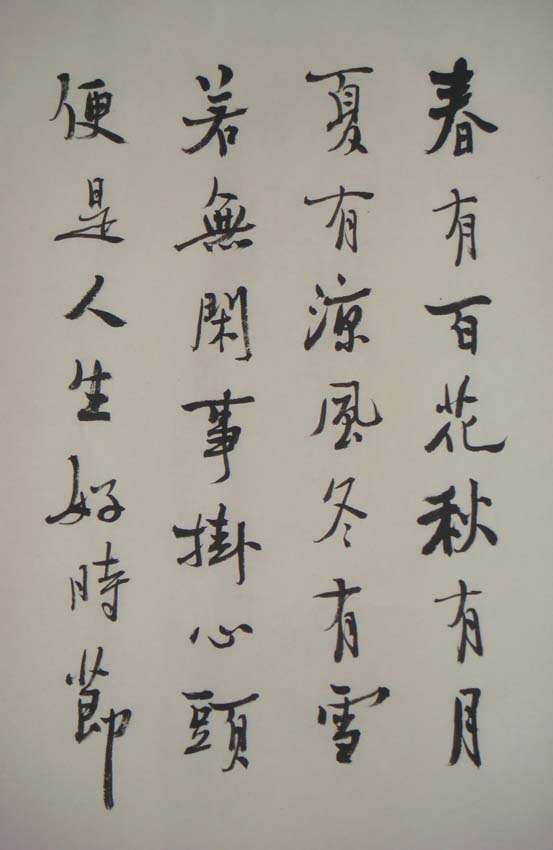 春有百花秋有月
夏有涼風冬有雪
若無閑事掛心頭
便是人生好時節